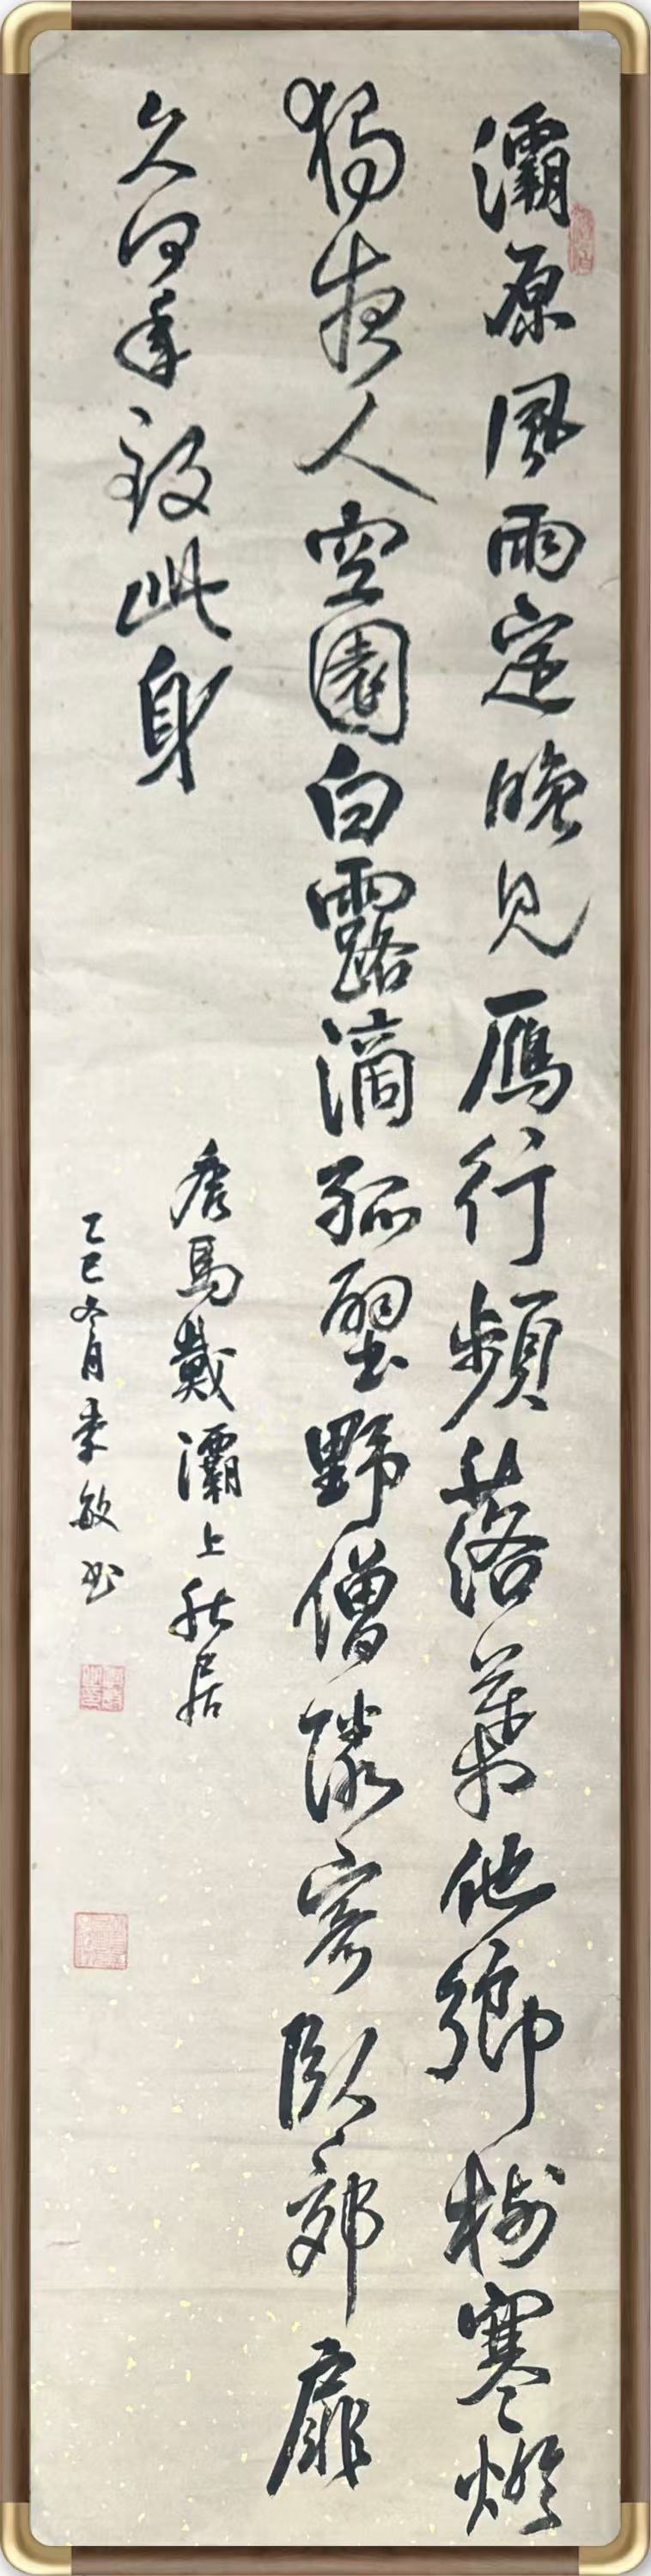 灞原風雨定晚見雁行頻落葉他鄉樹寒燈
獨夜人空園白露滴孤壁野僧隣寄臥郊扉
久何年致此身
唐馬戴灞上秋居
乙巳冬月李敏书